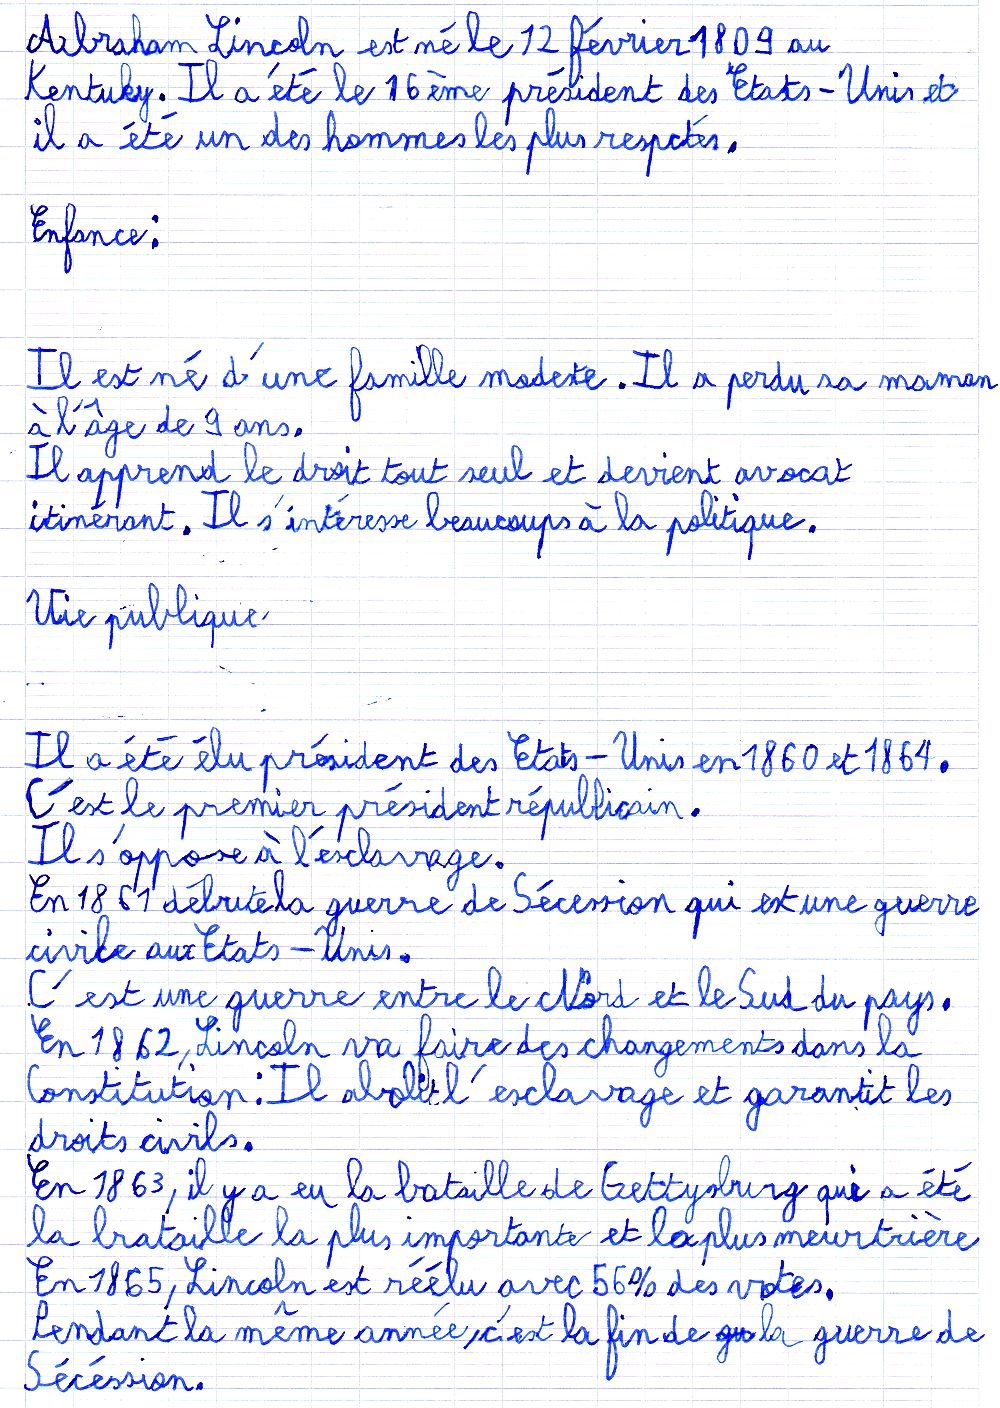 Abraham Lincoln est né le 12 février 1809 au
Kentuky. Il a été le 16ème président des Etats-Unis et
il a été un des hommes les plus respctés.
Enfance:
Il est né d'une famille modeste. Il a perdu sa maman
à l'âge de 9 ans.
Il apprend le droit tout seul et devient avocat
itinérant. Il s'intéresse beaucoups à la politique.
Vie publique
Il a été élu président des Etats-Unis en 1860 et 1864.
C'est le premier président républicain.
Il s'oppose à l'esclavage.
En 1861 débute la guerre de Sécession qui est une guerre
civile aux Etats-Unis.
C'est une guerre entre le Nord et le Sud du pays.
En 1862, Lincoln va faire des changements dans la
Constitution: Il abolit l'esclavage et garantit les
droits civils.
En 1863, il y a eu la bataille de Gettysburg qui a été
la brataille la plus importante et la plus meurtrière
En 1865, Lincoln est réélu avec 56% des votes.
Pendant la même année, c'est la fin de la guerre de
Sécéssion.